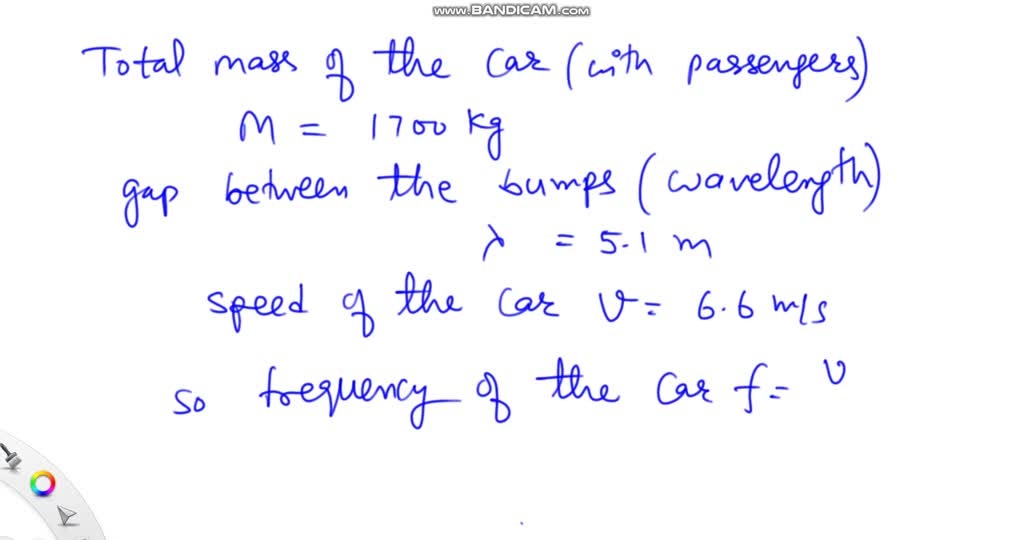 www.BANDICAM.com
Total mass of the car (with passengers)
M = 1700 kg
gap between the bumps (wavelength)
λ = 5.1 m
speed of the car v = 6.6 m/s
so frequency of the car f = v